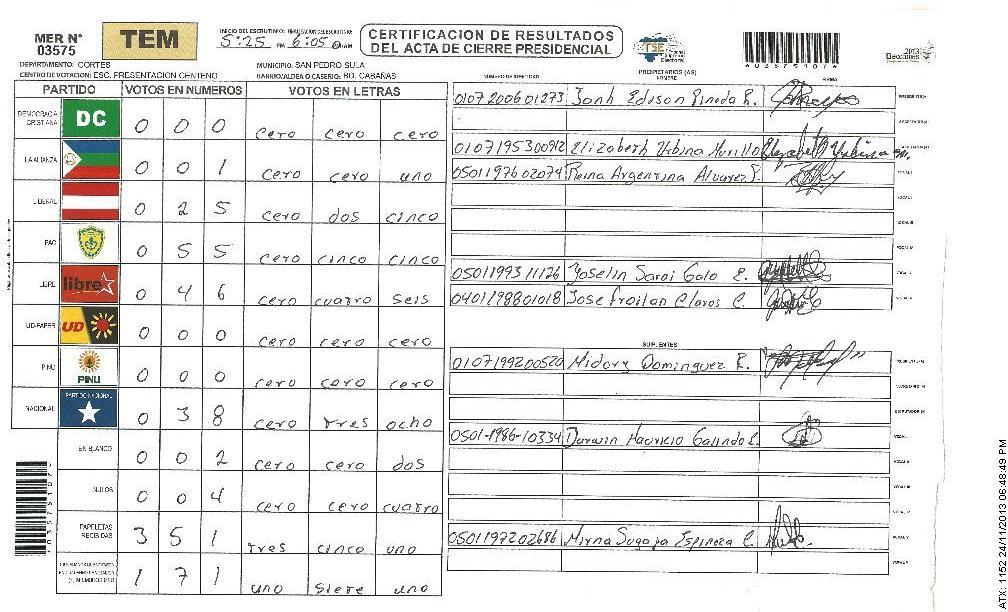 MER N°
03575
TEM
INICIO DEL ESCRUTINIO: FINALIZACION DEL ESCRUTINIO:
5:25 PM 6:05 AM
CERTIFICACION DE RESULTADOS
DEL ACTA DE CIERRE PRESIDENCIAL
TSE Tribunal Supremo Electoral
2013
Elecciones
DEPARTAMENTO: CORTES
MUNICIPIO: SAN PEDRO SULA
CENTRO DE VOTACION: ESC. PRESENTACION CENTENO
BARRIO/ALDEA O CASERIO: BO. CABAÑAS
PARTIDO VOTOS EN NUMEROS VOTOS EN LETRAS
DEMOCRACIA CRISTIANA DC 0 0 0 cero cero cero
LA ALIANZA 0 0 1 cero cero uno
LIBERAL 0 2 5 cero dos cinco
PAC 0 5 5 cero cinco cinco
LIBRE libre 0 4 6 cero cuatro seis
UD-FAPER UD 0 0 0 cero cero cero
PINU PINU 0 0 0 cero cero cero
NACIONAL PARTIDO NACIONAL 0 3 8 cero tres ocho
EN BLANCO 0 0 2 cero cero dos
NULOS 0 0 4 cero cero cuatro
PAPELETAS RECIBIDAS 3 5 1 tres cinco uno
1 7 1 uno siete uno
NUMERO DE IDENTIDAD PROPIETARIOS (AS) NOMBRE FIRMA
0107200601273 Edison Pineda R.
0107195300912 Elizabeth Urbina Murillo
0501197602074 Reina Argentina Alvarez
0501199311126 Yoselin Sarai Galo E.
0401198801018 Jose froilan Claros C.
SUPLENTES
0107199200520 Midory Dominguez R.
0501-1986-10334 Darwin Mauricio Galindo
0501197202686 Mirna Suyapa Espinoza C.
ATX: 1152 24/11/2013 06:48:49 PM